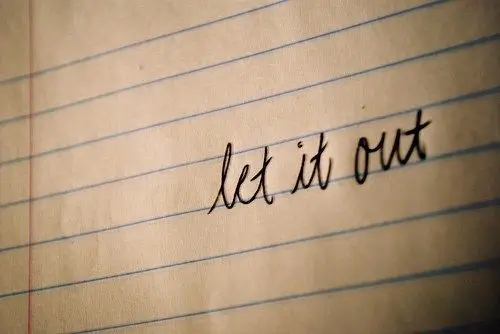 let it out